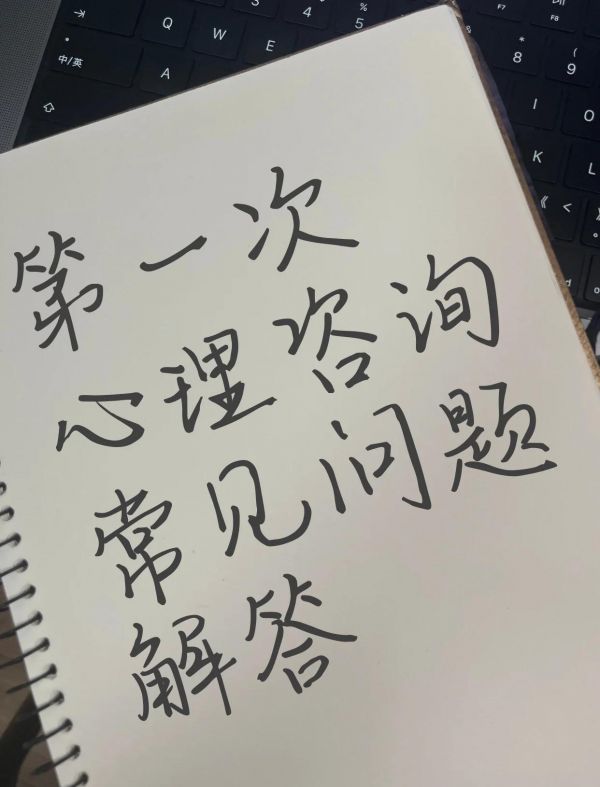 3
4
%
5
F7
F8
Q
W
E
*
8
(
9
中/英
A
I
O
K
L
《
<
第一次
心理咨询
常见问题
解答